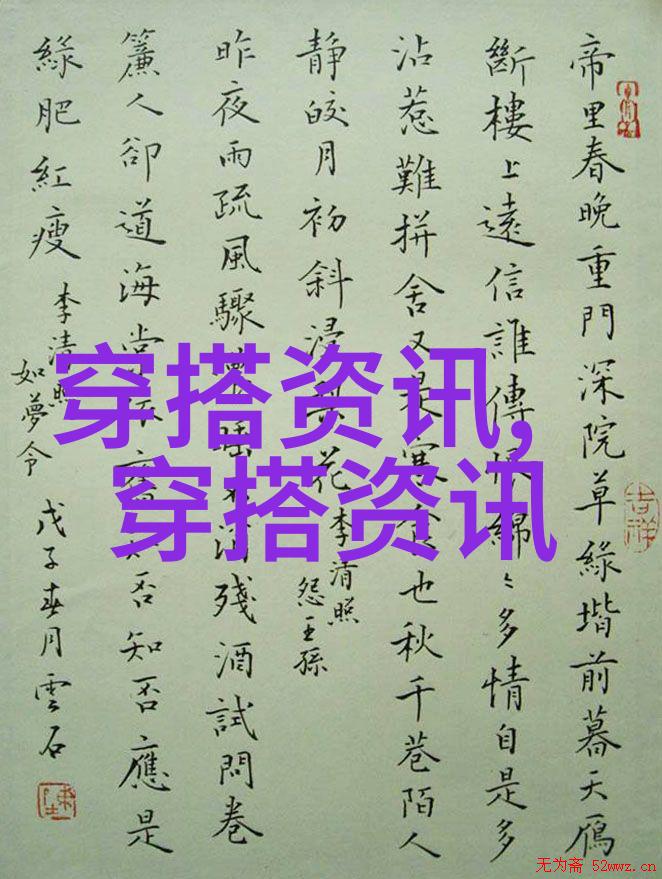 帝里春晚重門深院草緑堦前暮天鴈
斷樓上遠信誰傳恨綿〻多情自是多
沾惹難拼舍又是寒食也秋千巷陌人
静皎月初斜浸梨花
李清照
怨王孫
昨夜雨疏風驟濃睡不消殘酒試問卷
簾人卻道海棠依舊知否知否應是
緑肥紅瘦
李清照
如夢令
戊子春月雲石
吉祥
穿搭资讯,
穿搭资讯
无为斋 52wwz.cn